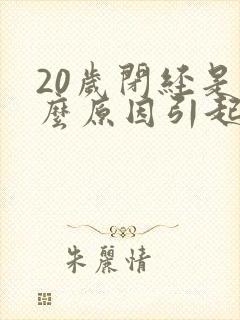 20歲閉経是
麼原因引起
朱麗情